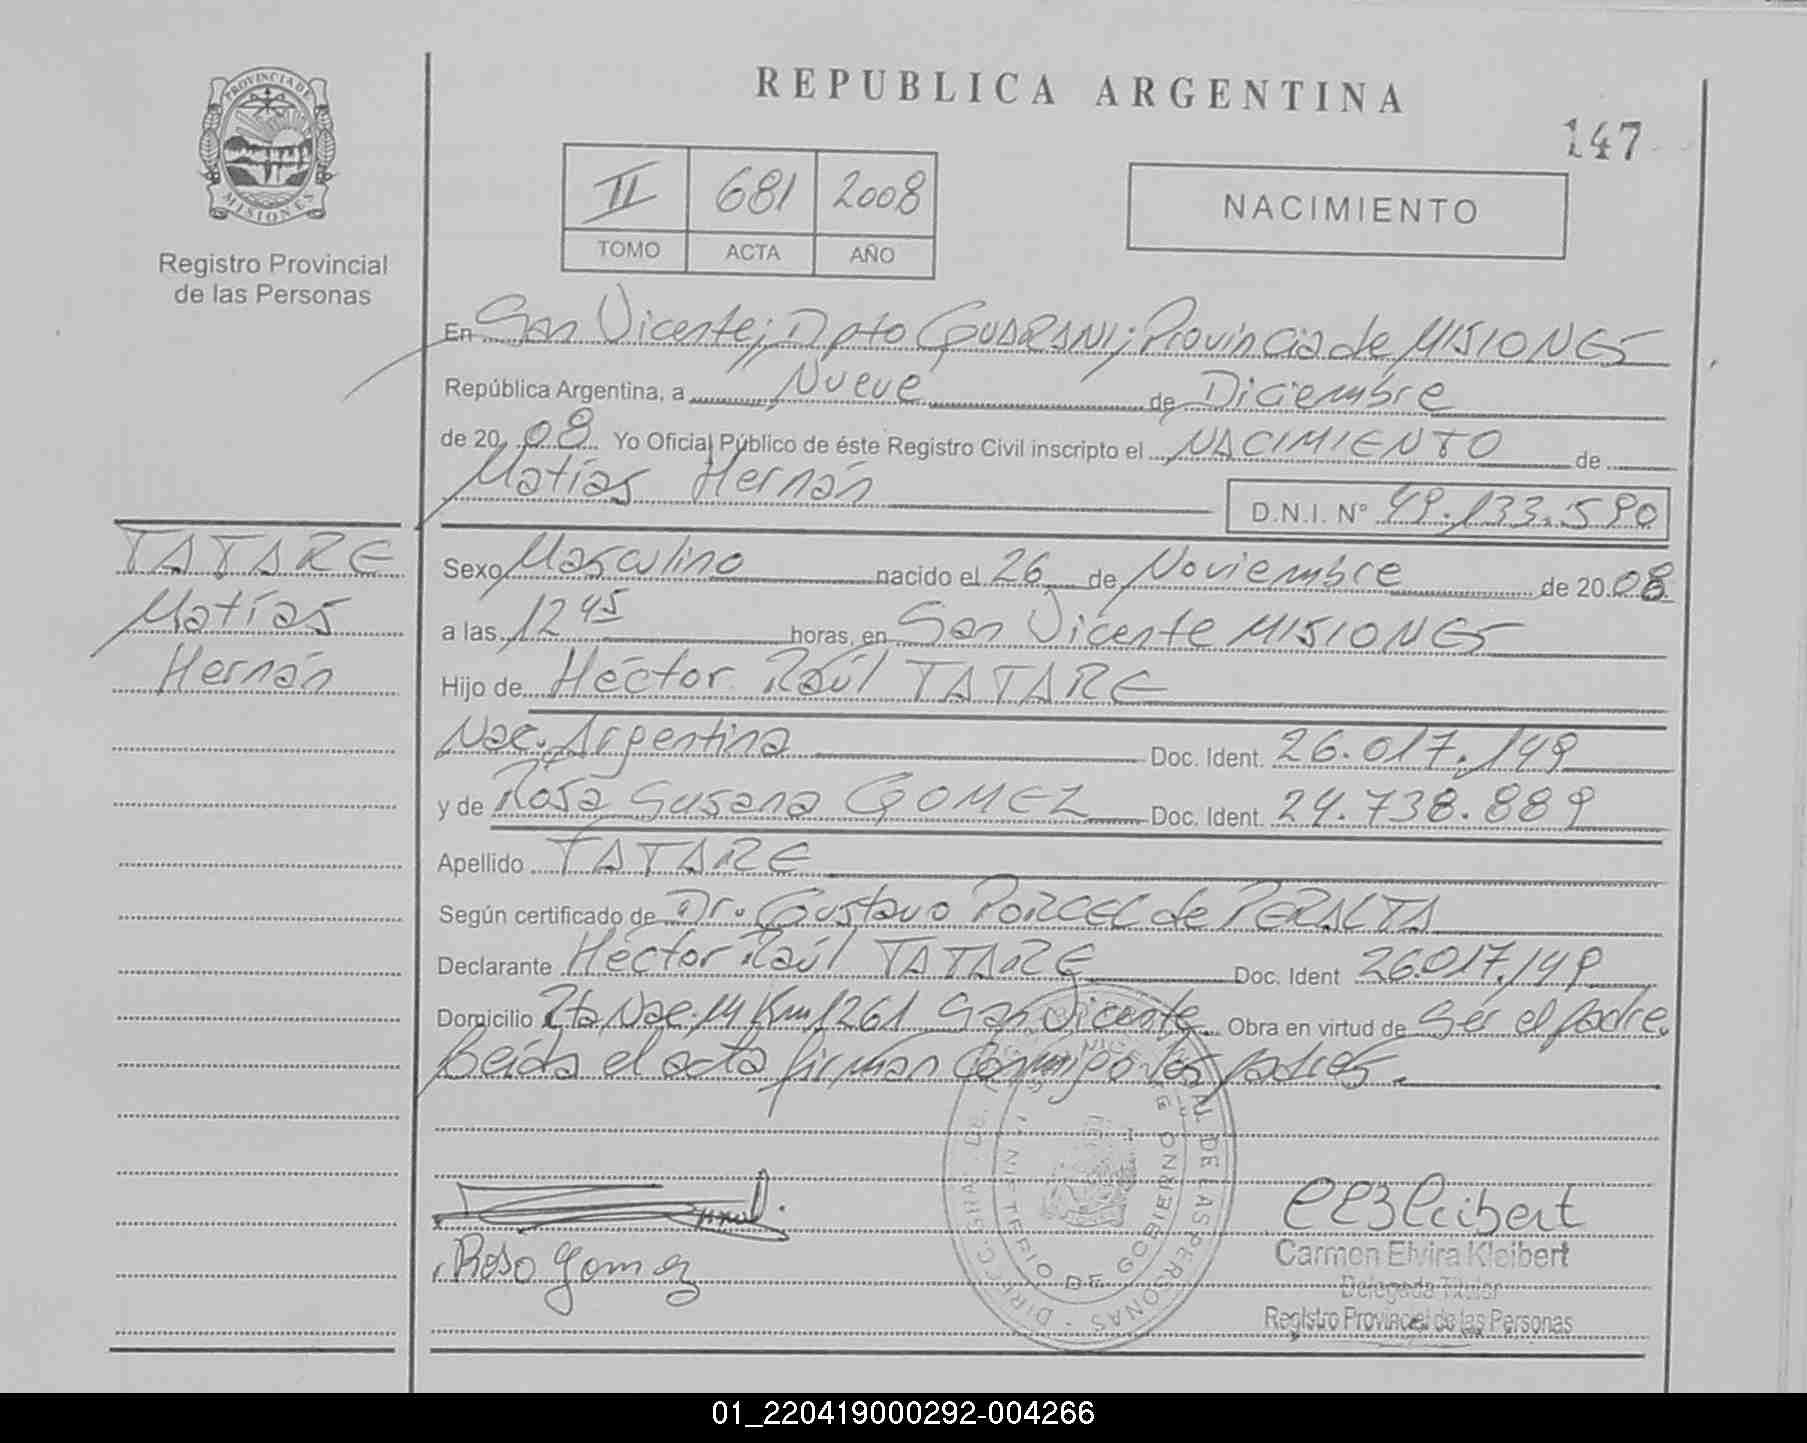 REPUBLICA ARGENTINA
147
PROVINCIA DE
MISIONES
Registro Provincial
de las Personas
II 681 2008
TOMO ACTA AÑO
NACIMIENTO
En San Vicente; Dpto GUARANI; Provincia de MISIONES
República Argentina, a Nueve de Diciembre
de 2008 Yo Oficial Público de éste Registro Civil inscripto el NACIMIENTO de
Matías Hernán
D.N.I. N° 49.133.590
TATARE
Matías
Hernán
Sexo Masculino nacido el 26 de Noviembre de 2008
a las 12 45 horas, en San Vicente MISIONES
Hijo de Héctor Raúl TATARE
Nac. Argentina Doc. Ident. 26.017.149
y de Rosa Susana GOMEZ Doc. Ident. 24.738.889
Apellido TATARE
Según certificado de Dr. Gustavo PORCEL de PERALTA
Declarante Héctor Raúl TATARE Doc. Ident 26.017.149
Domicilio Rta Nac. 14 Km 1261 San Vicente Obra en virtud de Ser el padre.
Leída el acta firman conmigo los padres.
Rosa Gomez
DIRECC. GRAL. DE LAS PERSONAS
MINISTERIO DE GOBIERNO
CEKleibert
Carmen Elvira Kleibert
Delegada Titular
Registro Provincial de las Personas
01_220419000292-004266